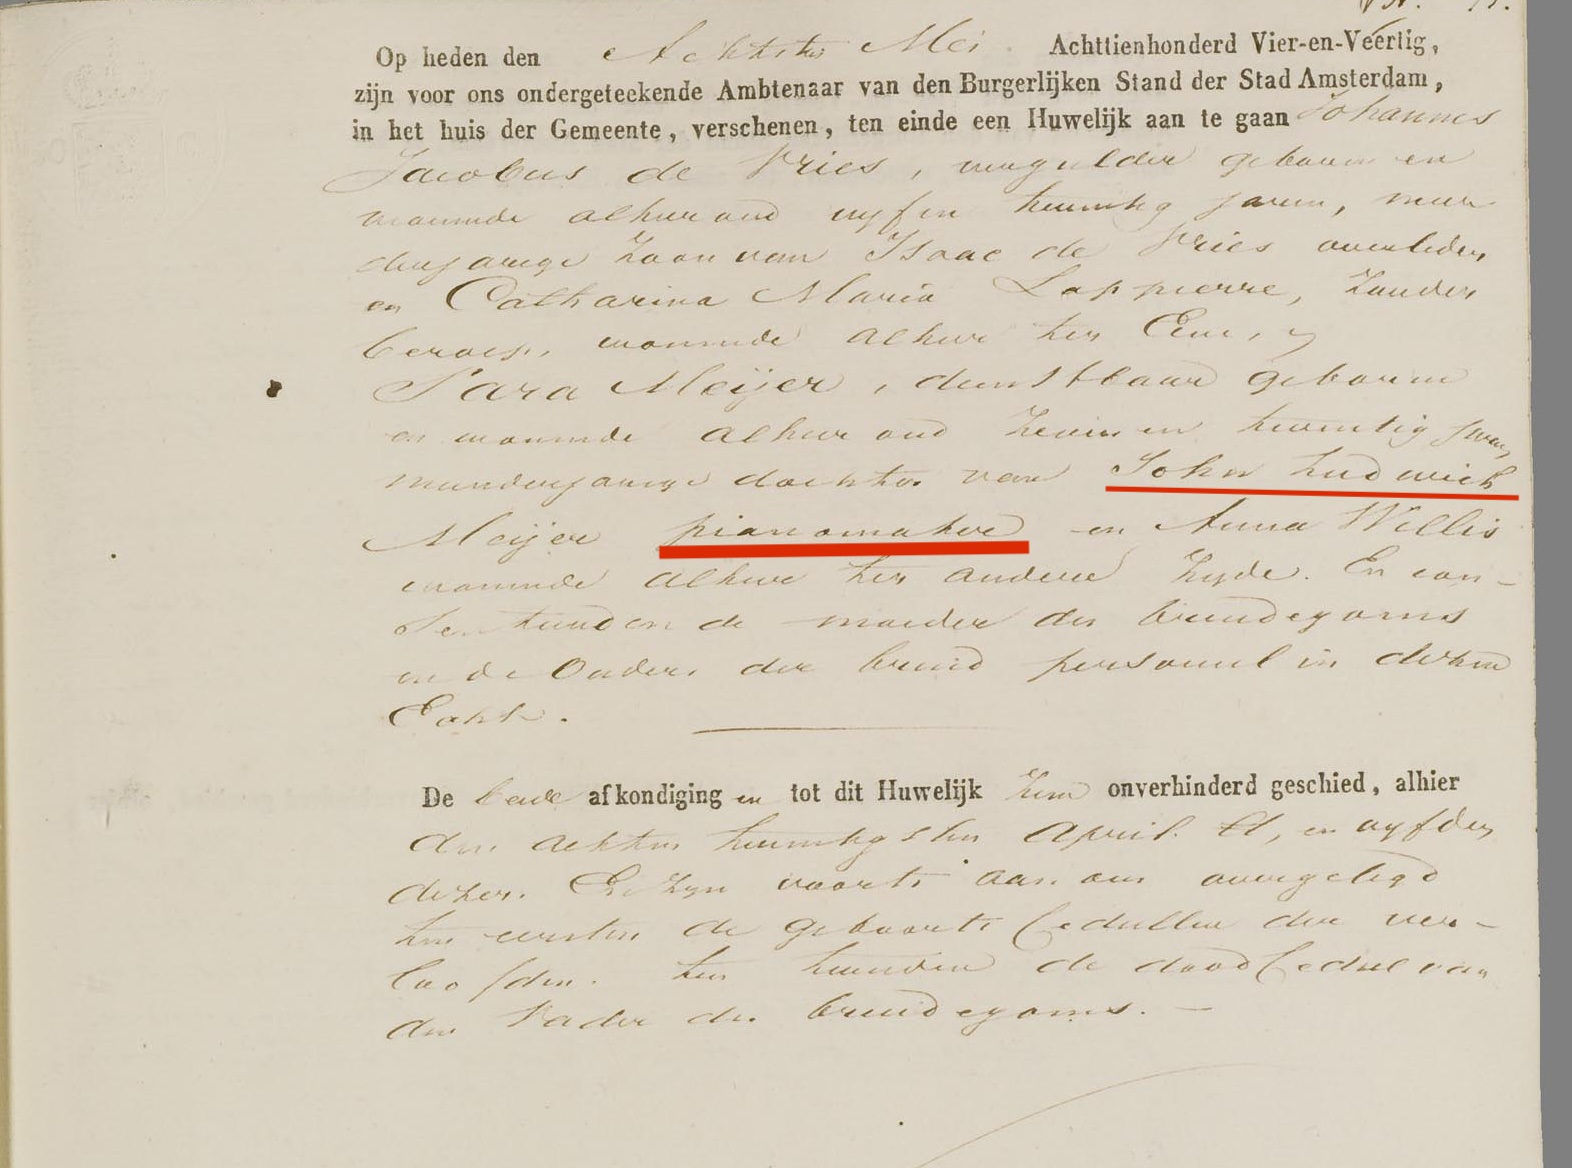 Op heden den Achtsten Mei. Achttienhonderd Vier-en-Veertig,
zijn voor ons ondergeteekende Ambtenaar van den Burgerlijken Stand der Stad Amsterdam,
in het huis der Gemeente, verschenen, ten einde een Huwelijk aan te gaan Johannes
Jacobus de Vries, vergulder geboren en
wonende alhier oud vyf en twintig jaren, meer
derjarige Zoon van Isaac de Vries overleden
en Catharina Maria Lappierre, zonder
beroep, wonende alhier ter Eene, &
Sara Meijer, dienstbaar geboren
en wonende alhier oud en twintig jaren,
minderjarige dochter van John Ludwich
Meijer pianomaker en Anna Willis
wonende alhier ter andere zyde. En con-
senteerden de moeder des bruidegoms
en de Ouders der bruid personeel in dezen
Echt.
De beide afkondigingen tot dit Huwelijk zyn onverhinderd geschied, alhier
den achten twintigsten April ll, en vyfden
dezer. En zyn voorts aan ons overgelegd
ten eersten de geboorte Cedullen der ver-
loofden. ten tweeden de dood Cedul van
den Vader des bruidegoms. —